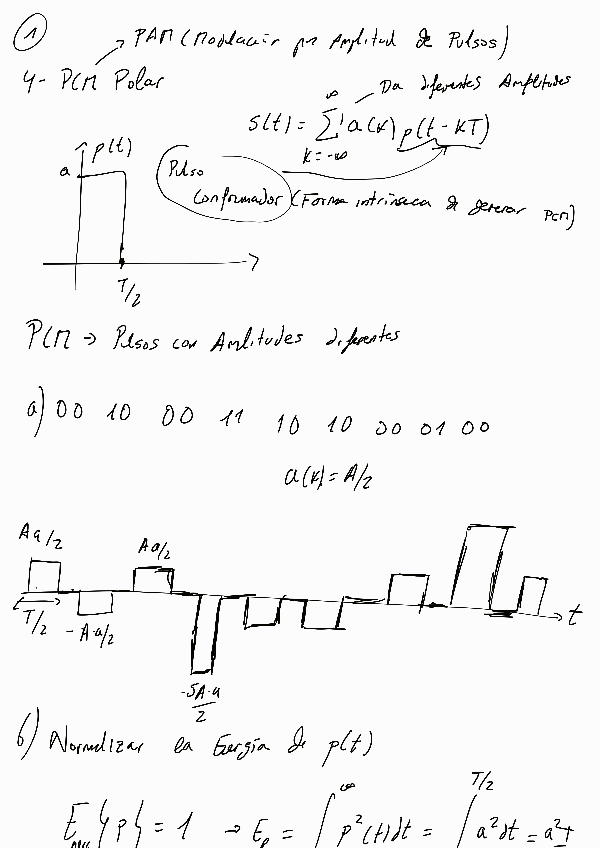 1
PAM (Modulación por Amplitud de Pulsos)
4- PCM Polar
Da diferentes Amplitudes
s(t) = ∑ a(k) p(t - kT)
∞
k=-∞
p(t)
a
T/2
Pulso
Conformador (Forma intrínseca de generar PCM)
PCM → Pulsos con Amplitudes diferentes
a) 00 10 00 11 10 10 00 01 00
a(k) = A/2
Aa/2
Aa/2
T/2
-A·a/2
t
-5A·a/2
b) Normalizar la Energía de p(t)
E {p} = 1 → Ep = ∫ p²(t)dt = ∫ a²dt = a²T
∞
T/2